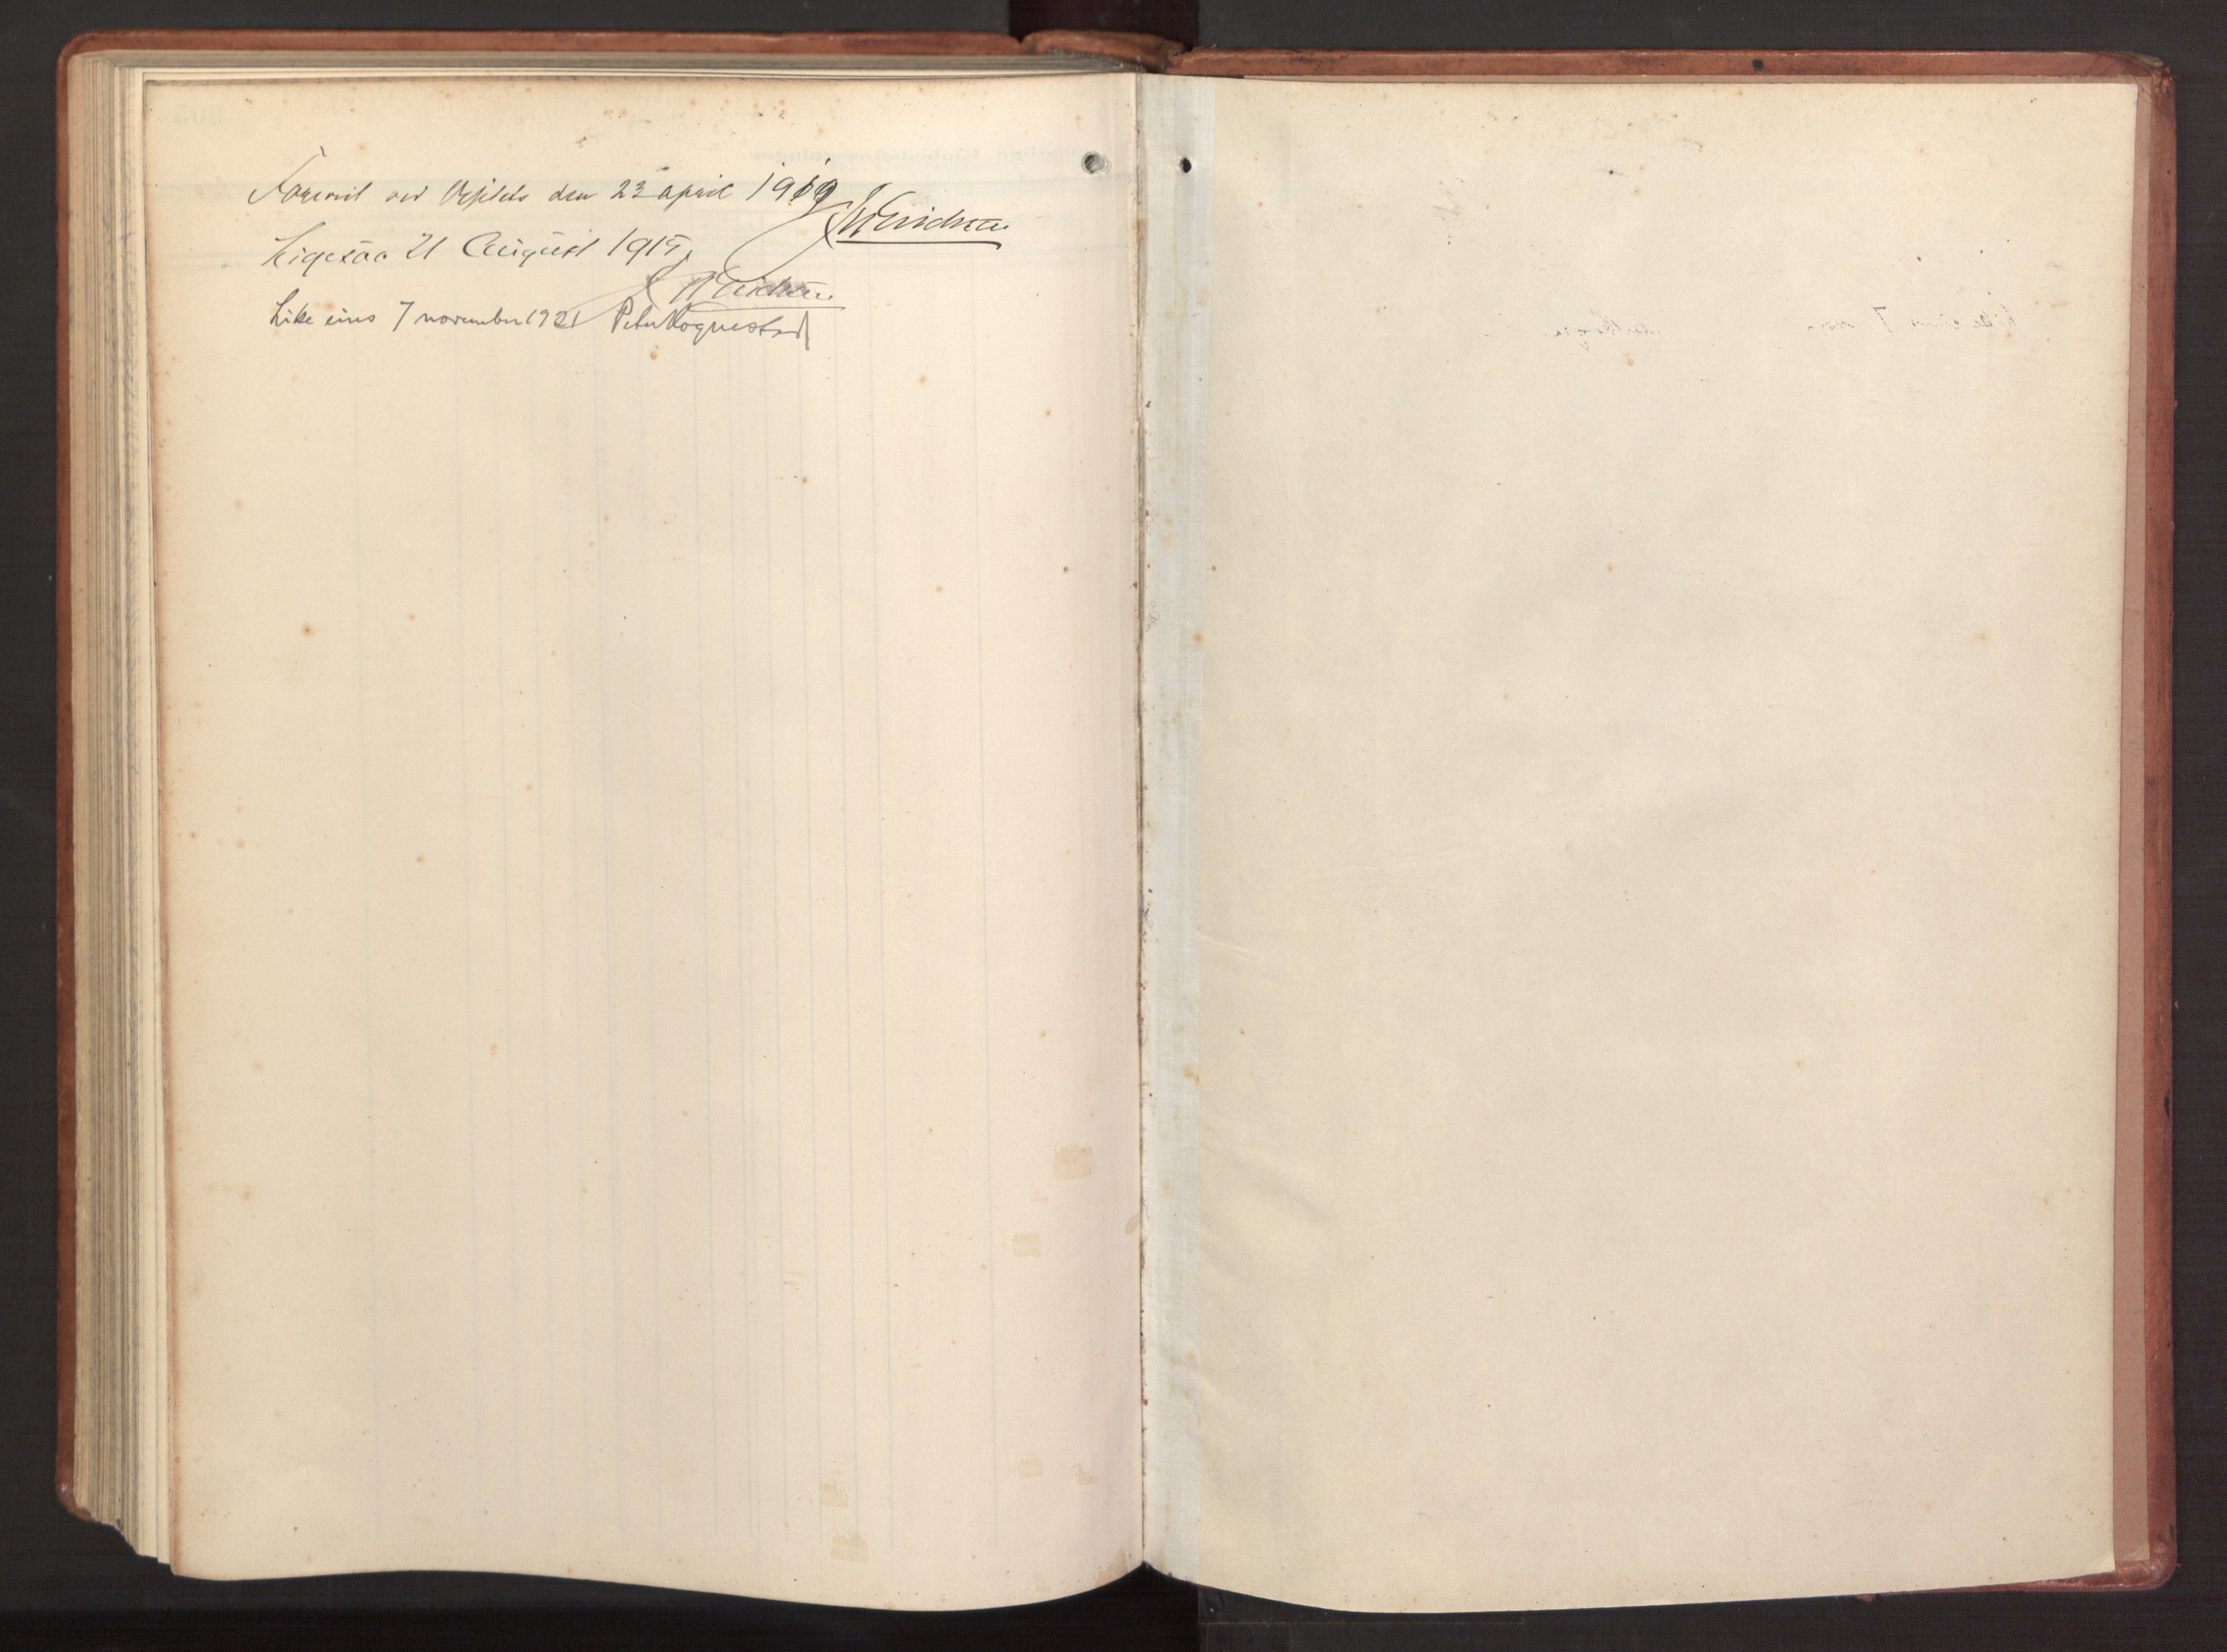 Forevist ved Visitats den 23 april 1919 Erichsen
Ligesaa 21 August 1915 Erichsen
Like eins 7 november 1921 Peter Hognestad